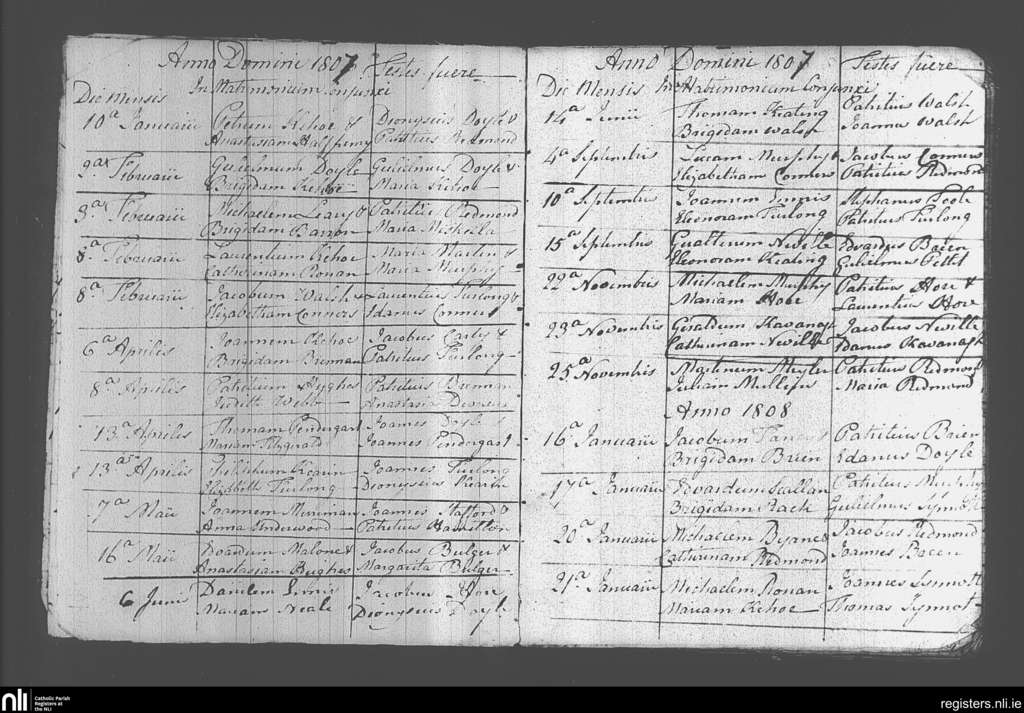 Anno Domini 1807 Testes fuere
Die Mensis In Matrimonium Conjunxi
10a Januarii Petrum Kehoe & Dionysius Doyle &
Anastasiam Patritius Redmond
9a Februarii Gulielmum Doyle Gulielmus Doyle &
& Brigidam Kehoe Maria Kehoe
9a Februarii Michaelem Leary & Patritius Redmond
Brigidam Barron Maria
8a Februarii Laurentium Kehoe Maria Martin &
Catharinam Ronan Maria Murphy
8a Februarii Jacobum Walsh & Laurentius Furlong &
Elizabetham Conners Idanus Conners
6a Aprilis Joannem Kehoe Jacobus &
Brigidam Brennan Patritius Furlong
8a Aprilis Patritium Hughes Patritius Brennan
Judith Anastasia
13a Aprilis Thomam Pendergast Joannes Doyle &
Mariam Fitzgerald Joannes Pendergast
13a Aprilis Joannes Furlong
Elizabeth Furlong Dionysius
7a Maii Joannem Joannes Stafford &
Anna Underwood Patritius Hamilton
16a Maii Edardum Malone & Jacobus Bulger &
Anastasiam Hughes Margarita Bulger
6 Junii Danilem Jacobus Hore
Mariam Neale Dionysius Doyle
Anno Domini 1807 Testes fuere
Die Mensis In Matrimonium Conjunxi
14a Junii Thomam Keating Patritius Walsh
Brigidam Walsh Joannes Walsh
4a Septembris Lucam Murphy & Jacobus Conners
Elizabetham Conners Patritius Redmond
10a Septembris Joannem Stephanus Poole
Eleonoram Furlong Patritius Furlong
15a Septembris Gualterum Neville Edvardus Brien
Eleonoram Keating Gulielmus Pettit
22a Novembris Michaelem Murphy Patritius Hore &
Mariam Hore Laurentius Hore
23a Novembris Geraldum Kavanagh Jacobus Neville
Catharinam Neville Idanus Kavanagh
25a Novembris Martinum Meyler Patritius Redmond
Maria Redmond
Anno 1808
16a Januarii Jacobum Patritius Brien
Brigidam Brien Edanus Doyle
17a Januarii Edvardum Scallan Patritius Murphy
Brigidam Gulielmus Synnott
20a Januarii Michaelem Jacobus Redmond
Catharinam Redmond Joannes
21a Januarii Michaelem Ronan Joannes Synnott
Mariam Kehoe Thomas Synnot
nli Catholic Parish
Registers at
the NLI
registers.nli.ie